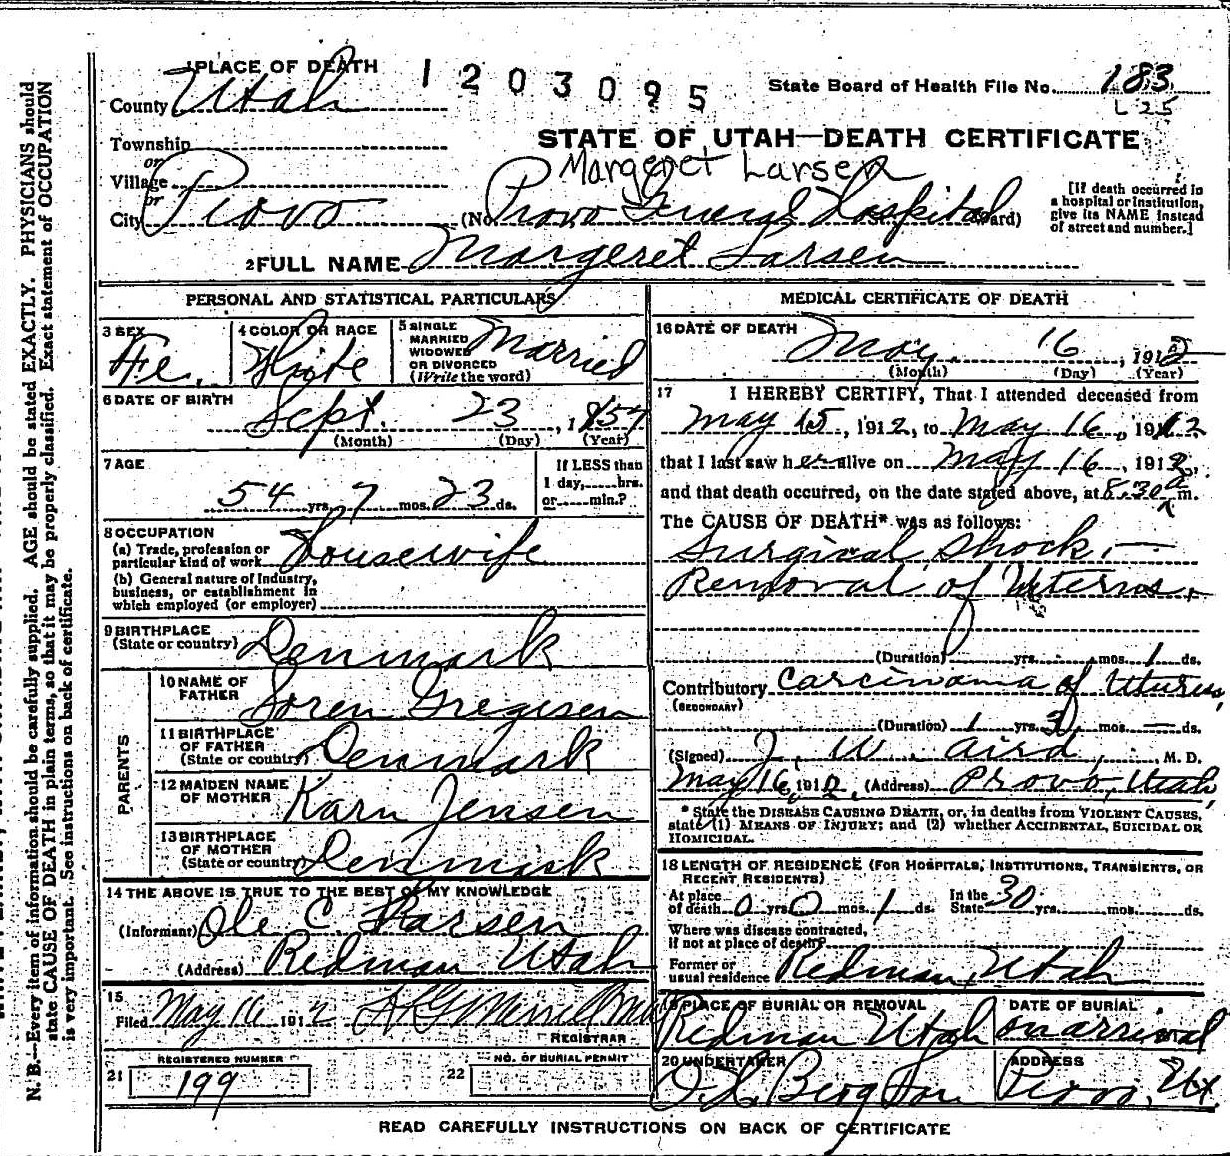 1 PLACE OF DEATH 1 2 0 3 0 9 5 State Board of Health File No. 183
County Utah L 25
Township STATE OF UTAH—DEATH CERTIFICATE
or Margeret Larsen
Village
or
City Provo (No. Provo General Hospital Ward)
[If death occurred in
a hospital or institution,
give its NAME instead
of street and number.]
2 FULL NAME Margeret Larsen
PERSONAL AND STATISTICAL PARTICULARS
3 SEX
Fe.
4 COLOR OR RACE
White
5 SINGLE
MARRIED
WIDOWED
OR DIVORCED
(Write the word)
Married
6 DATE OF BIRTH
Sept. 23, 1857
(Month) (Day) (Year)
7 AGE
54 yrs. 7 mos. 23 ds.
If LESS than
1 day, hrs.
or min.?
8 OCCUPATION
(a) Trade, profession or
particular kind of work Housewife
(b) General nature of industry,
business, or establishment in
which employed (or employer)
9 BIRTHPLACE
(State or country) Denmark
PARENTS
10 NAME OF
FATHER Soren Gregersen
11 BIRTHPLACE
OF FATHER
(State or country) Denmark
12 MAIDEN NAME
OF MOTHER Karn Jensen
13 BIRTHPLACE
OF MOTHER
(State or country) Denmark
14 THE ABOVE IS TRUE TO THE BEST OF MY KNOWLEDGE
(Informant) Ole C. Larsen
(Address) Redman Utah
15
Filed May 16 1912 Merrill
REGISTRAR
REGISTERED NUMBER
21 199
NO. OF BURIAL PERMIT
22
MEDICAL CERTIFICATE OF DEATH
16 DATE OF DEATH
May. 16, 1912
(Month) (Day) (Year)
17 I HEREBY CERTIFY, That I attended deceased from
May 15, 1912, to May 16, 1912
that I last saw her alive on May 16, 1912,
and that death occurred, on the date stated above, at 8.30 a m.
The CAUSE OF DEATH* was as follows:
Surgical Shock,
Removal of Uterus.
(Duration) yrs. mos. 1 ds.
Contributory Carcinoma of Uturus,
(SECONDARY)
(Duration) 1 yrs. 3 mos. — ds.
(Signed) J. W. Aird, M. D.
May 16, 1912, (Address) Provo, Utah,
* State the DISEASE CAUSING DEATH, or, in deaths from VIOLENT CAUSES,
state (1) MEANS OF INJURY; and (2) whether ACCIDENTAL, SUICIDAL OR
HOMICIDAL.
18 LENGTH OF RESIDENCE (FOR HOSPITALS, INSTITUTIONS, TRANSIENTS, OR
RECENT RESIDENTS)
At place
of death 0 yrs 0 mos. 1 ds.
In the
State 30 yrs. mos. ds.
Where was disease contracted,
if not at place of death?
Former or
usual residence Redman, Utah
19 PLACE OF BURIAL OR REMOVAL
Redman Utah
DATE OF BURIAL
on arrival
20 UNDERTAKER
Berg Son
ADDRESS
Provo, Ut
READ CAREFULLY INSTRUCTIONS ON BACK OF CERTIFICATE
N. B.—Every item of information should be carefully supplied. AGE should be stated EXACTLY. PHYSICIANS should
state CAUSE OF DEATH in plain terms, so that it may be properly classified. Exact statement of OCCUPATION
is very important. See instructions on back of certificate.